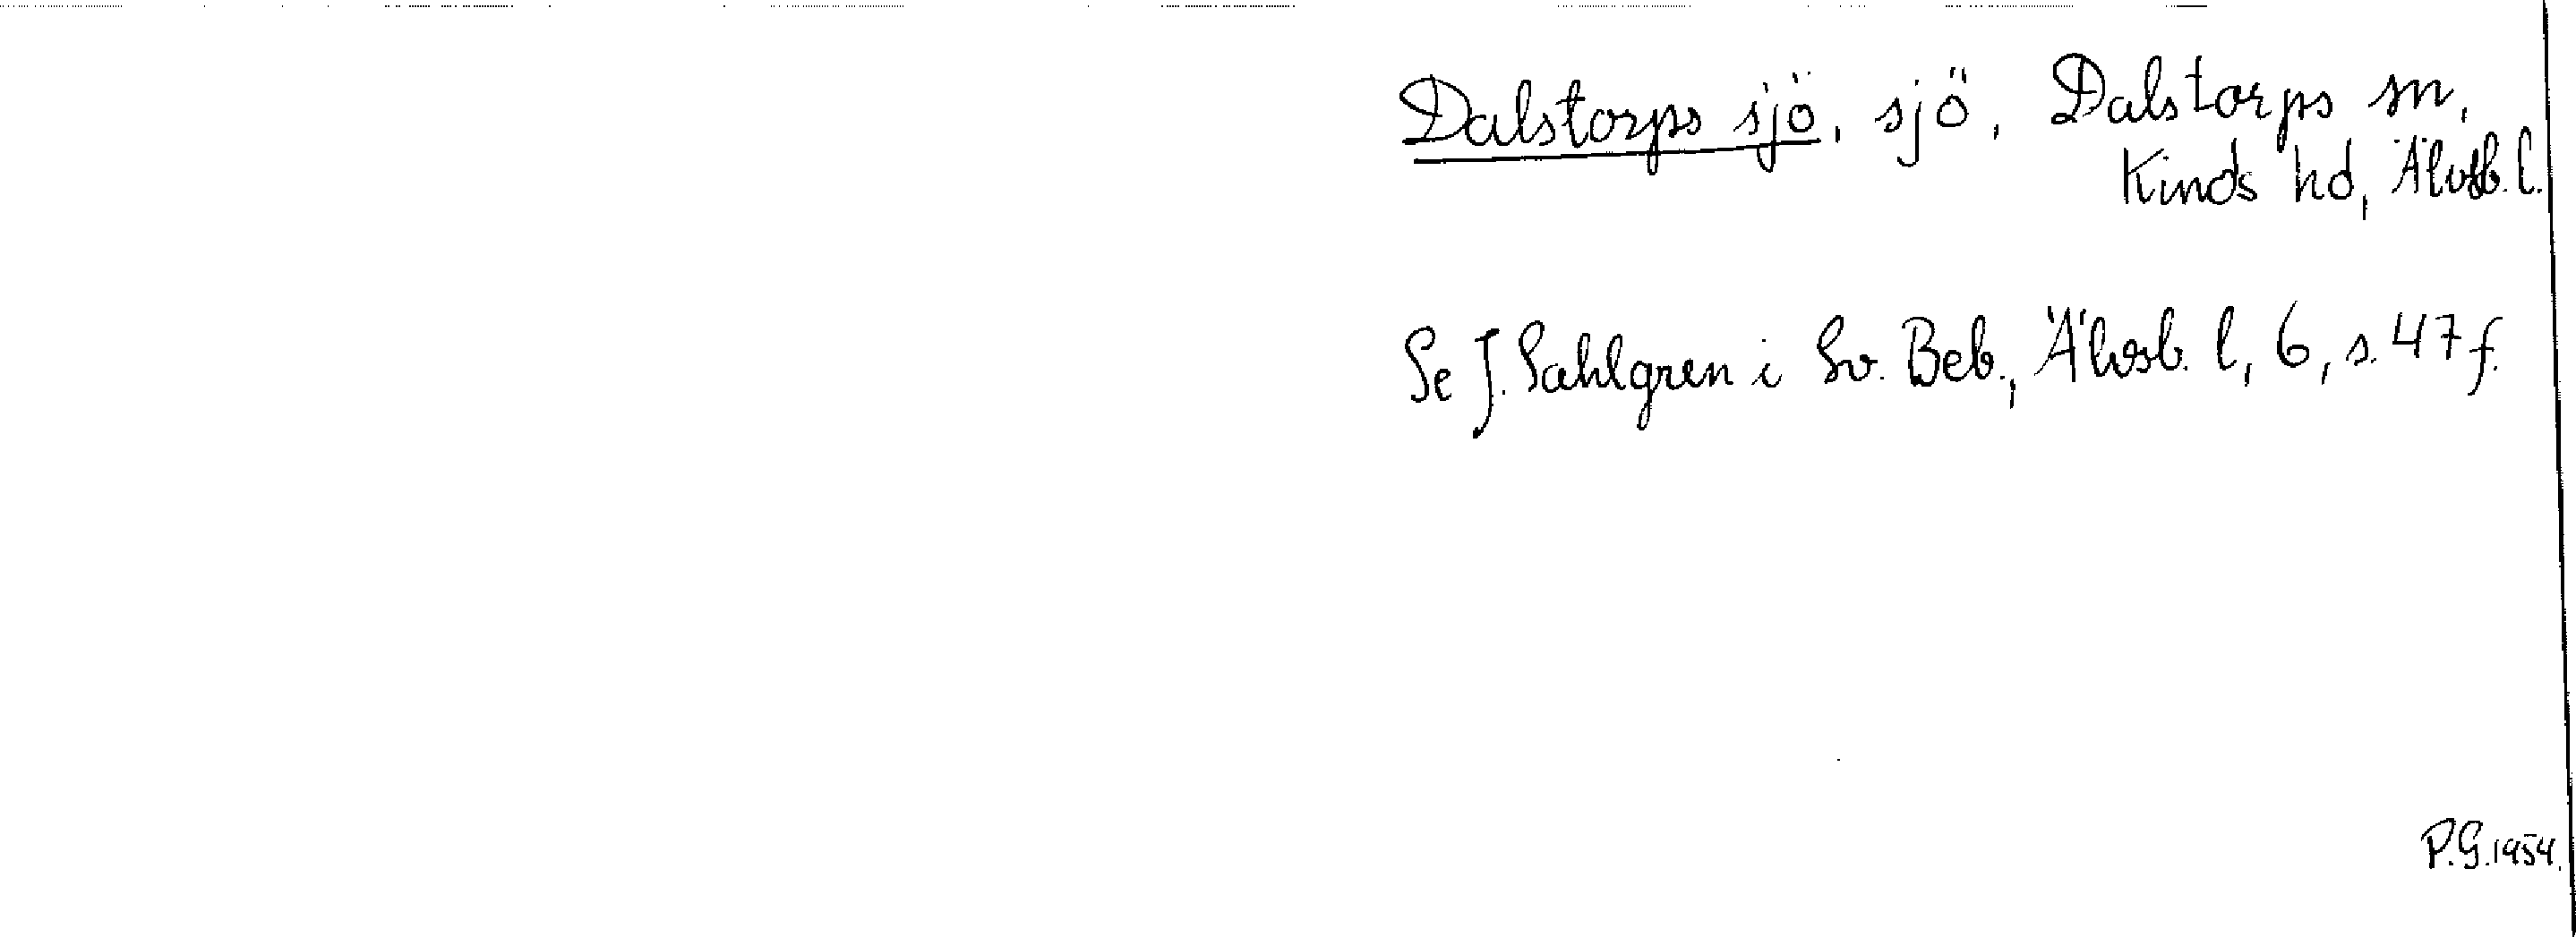 Dalstorps sjö, sjö, Dalstorps sn,
Kinds hd, Älvsb. l.
Se J. Sahlgren i Sv. Beb., Älvsb. l, 6, s. 47 f.
P.G. 1954.